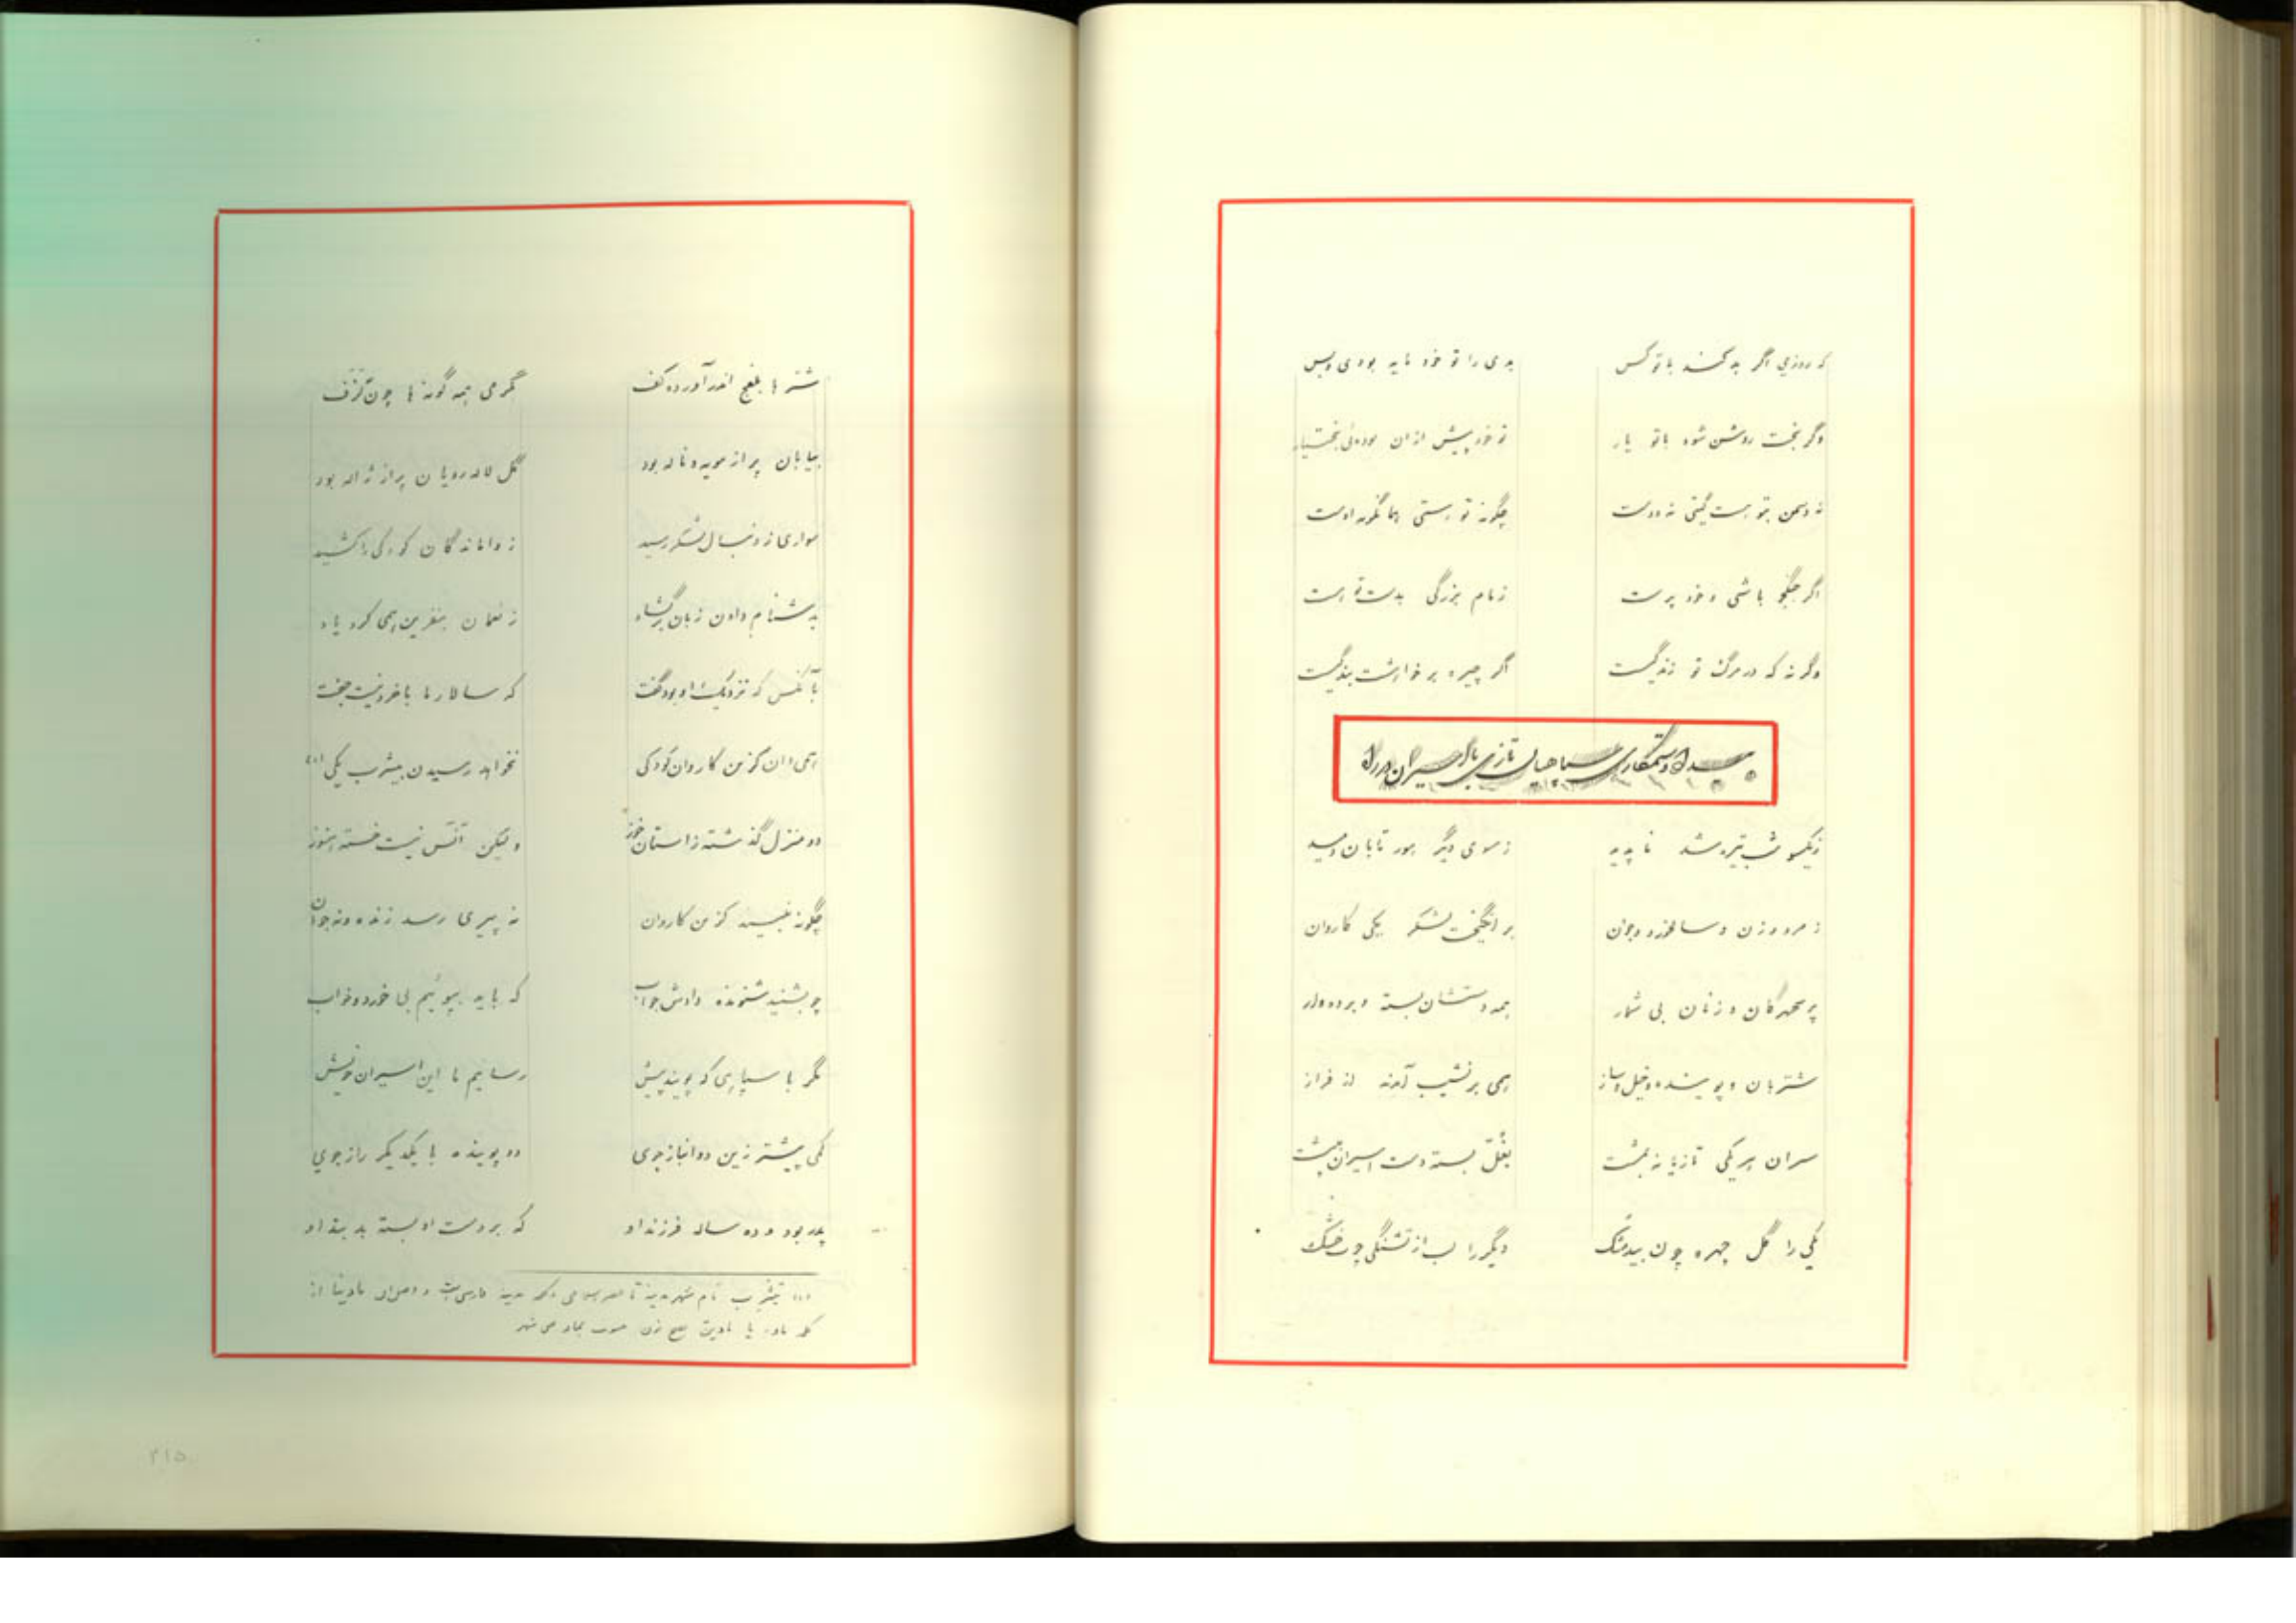 که روزی اگر بد کند با تو کس بدی را تو خود مایه بودی و بس
وگر بخت روشن شود با تو یار تو خود پیش از آن بوده‌ای بختیار
نه دشمن بتو هست گیتی نه دوست چگونه تو هستی همانگونه اوست
اگر جنگجو باشی و خود پرست زمام بزرگی بدست تو است
وگرنه که در مرگ تو زندگیست اگر چیره بر خواهشت بندگیست
بیداد و ستمکاری سپاهیان تازی با اسیران در راه
زیکسو شب تیره شد ناپدید ز سوی دگر هور تابان دمید
ز مرد و زن و سالخورد و جوان بر انگیخت لشکر یکی کاروان
پر سحرگان و زنان بی شمار همه دستشان بسته و برده وار
شتربان و پوینده و خیل و ساز همی بر نشیب آمدند از فراز
سران هر یکی تازیانه بمشت بغل بسته دست اسیران بپشت
یکی را گل چهره چون بیدمشک دیگر را لب از تشنگی چوب خشک
شترها بلفج اندر آورده کف ز گرمی همه گونه‌ها چون
بیابان پر از مویه و ناله بود گل لاله رویان پر از ژاله بود
سواری ز دنبال لشکر رسید ز واماندگان کودکی را کشید
به دشنام دادن زبان برگشاد ز نعمان بنفرین همی کرد یاد
بآنکس که نزدیک او بود گفت که سالار ما با خرد نیست جفت
همی دان کزین کاروان کودکی نخواهد رسیدن بیثرب یکی (۱)
دو منزل گذشته ز استان خوز ولیکن آنکس نیست خسته هنوز
چگونه نبیند کزین کاروان نه پیری رسد زنده و نه جوان
چو بشنید شنونده دادش جواب که باید بپوئیم بی خورد و خواب
مگر با سپاهی که پویند پیش رسانیم ما این اسیران خویش
کمی پیشتر زین دو انباز جوی دو پوینده با یکدیگر راز جوی
پدر بود و ده ساله فرزند او که بر دست او بسته بد بند او
(۱) یثرب نام شهر مدینه تا و کلمه مدینه فارسی است و اصل آن مادینا از
کلمه ماد یا می شهر
۲۱۵